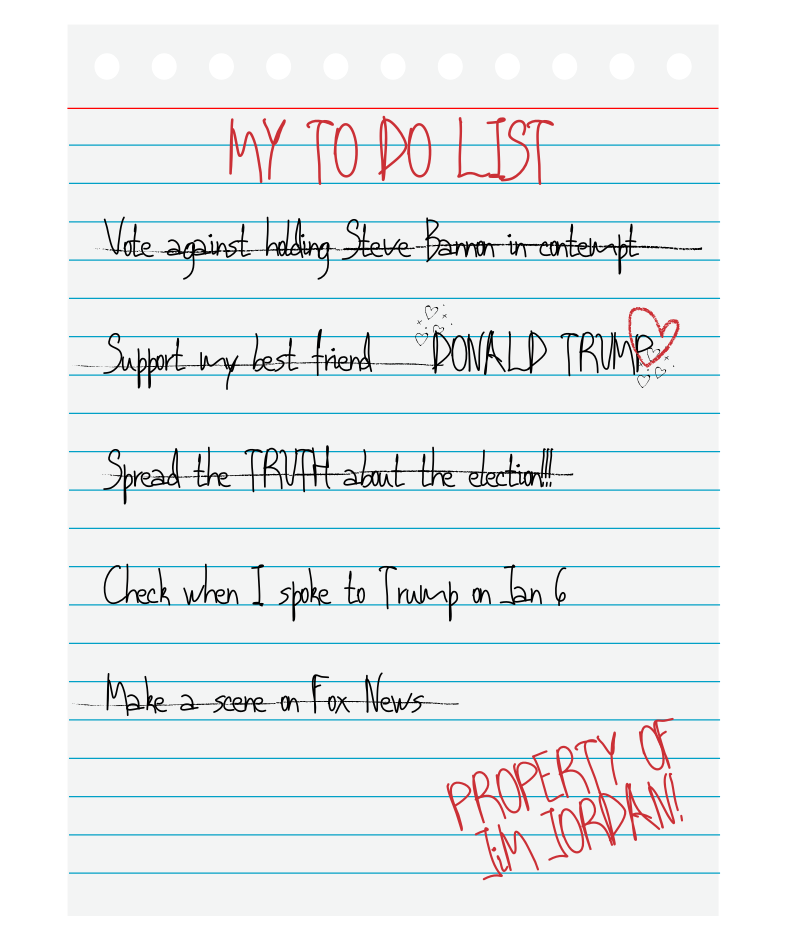 MY TO DO LIST
Vote against holding Steve Bannon in contempt
Support my best friend DONALD TRUMP
Spread the TRUTH about the election!!!
Check when I spoke to Trump on Jan 6
Make a scene on Fox News
PROPERTY OF
JiM JORDAN!